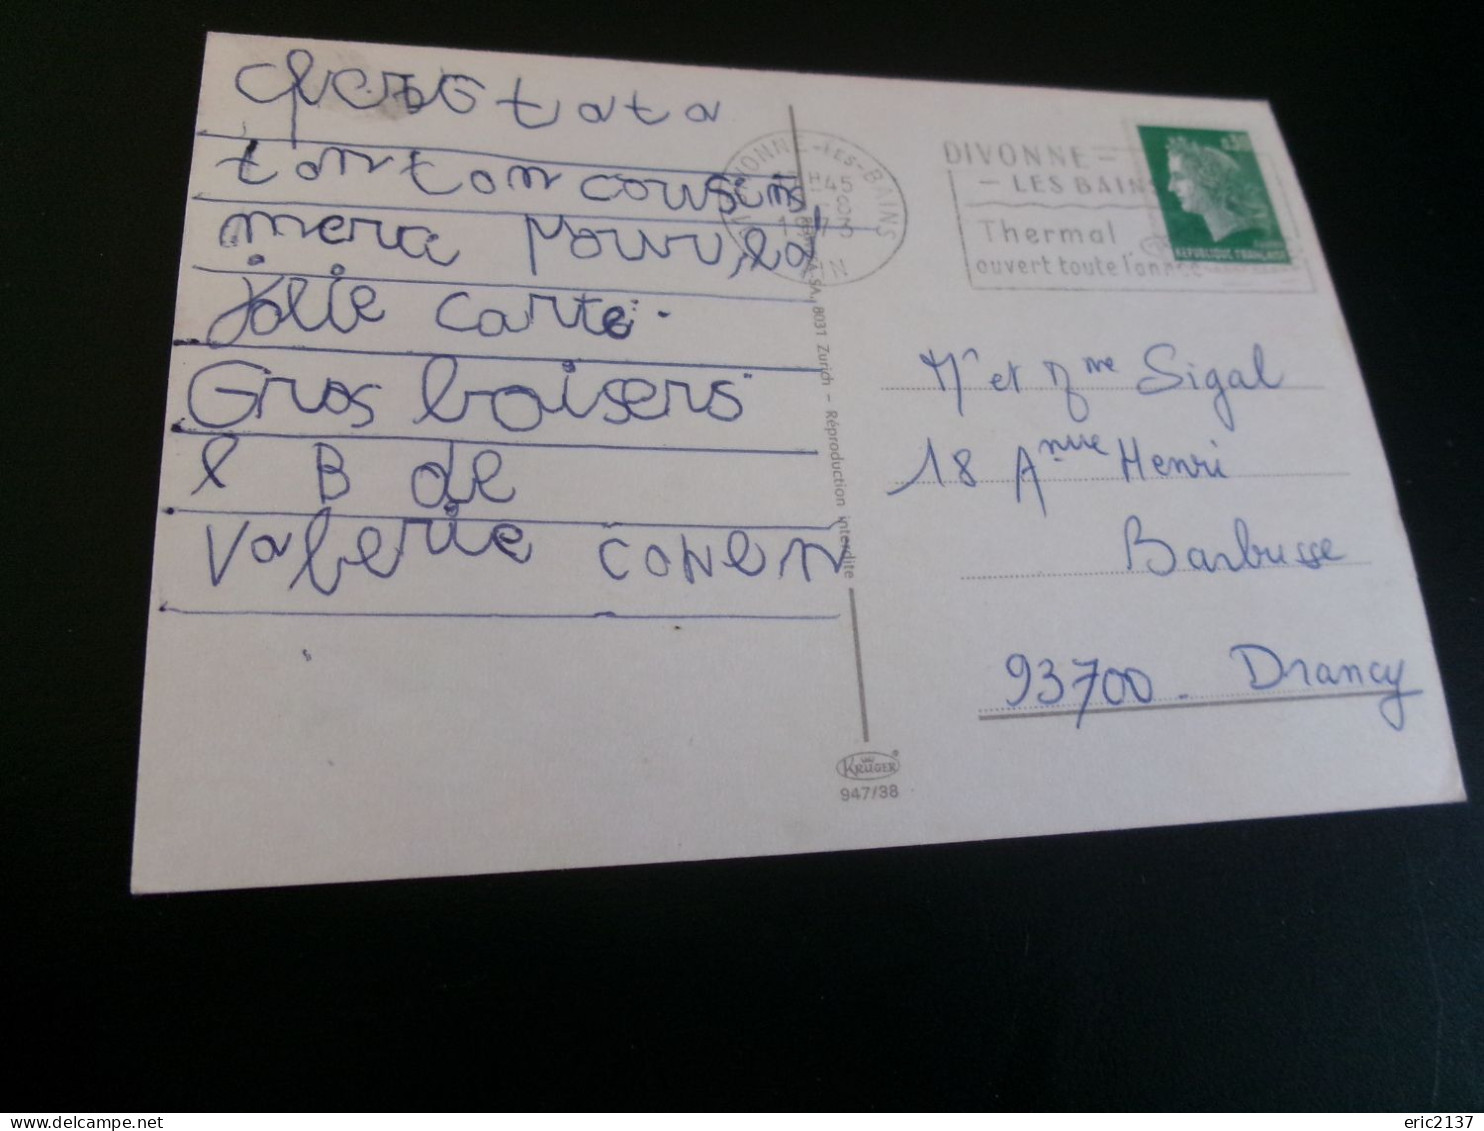 tata
tonton cousins
merci pour la
jolie carte.
Gros baisers
B de
Valerie COHEN
DIVONNE-LES-BAINS
45
AIN
DIVONNE -
- LES BAINS
Thermal
ouvert toute l'année
0,30
REPUBLIQUE FRANÇAISE
SA, 8031 Zurich - Réproduction interdite
Mr et Mme Sigal
18 Anue Henri
Barbusse
93700 - Drancy
KRÜGER
947/38
delcampe.net
eric2137